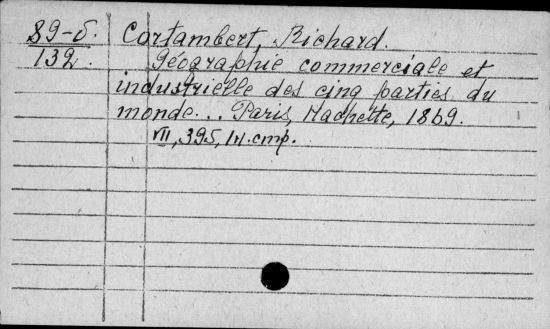 89-5. Cortambert, Richard.
132. Géographie commerciale et
industrielle des cinq parties du
monde... Paris, Hachette, 1869.
VII, 395, IH. стр.